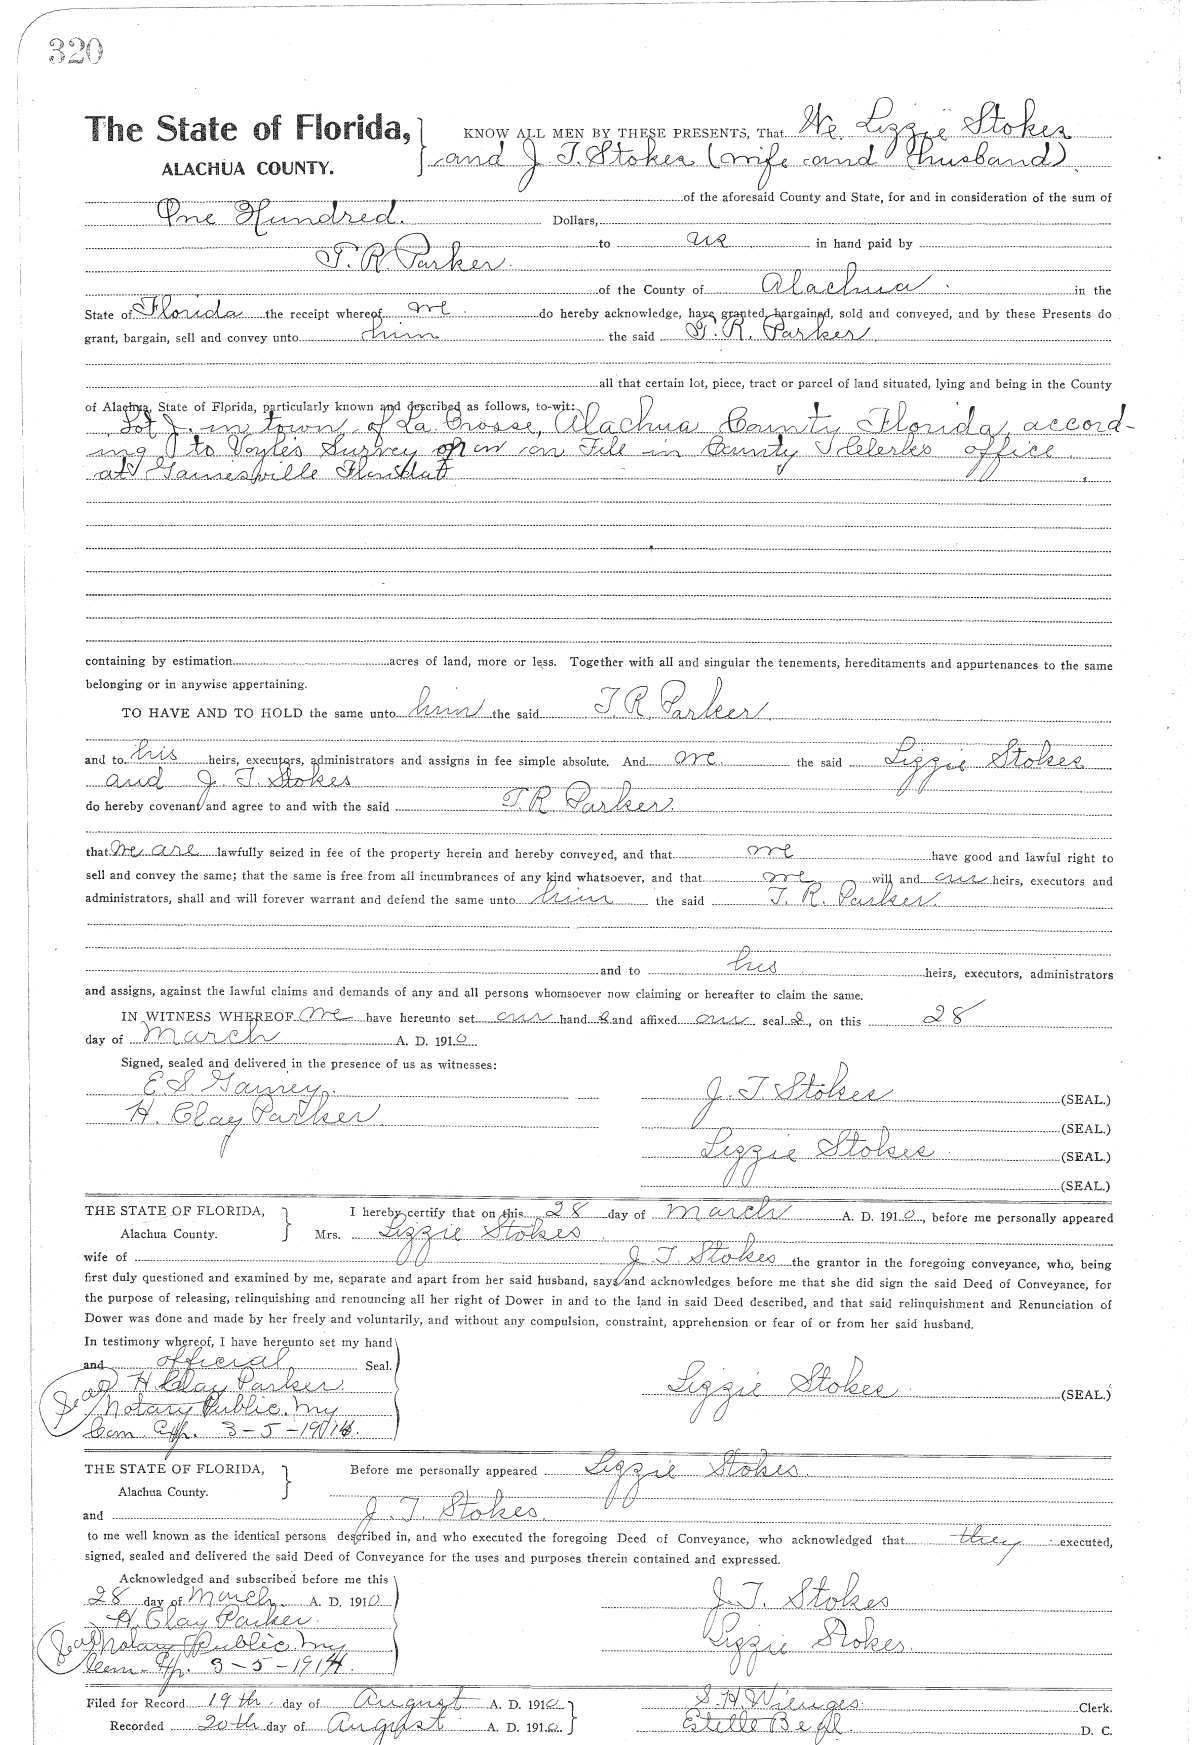 320
The State of Florida, KNOW ALL MEN BY THESE PRESENTS, That We Lizzie Stokes
ALACHUA COUNTY. and J. T. Stokes (wife and husband)
of the aforesaid County and State, for and in consideration of the sum of
One Hundred. Dollars,
to us in hand paid by
T. R. Parker.
of the County of Alachua in the
State of Florida the receipt whereof we do hereby acknowledge, have granted, bargained, sold and conveyed, and by these Presents do
grant, bargain, sell and convey unto him the said T. R. Parker
all that certain lot, piece, tract or parcel of land situated, lying and being in the County
of Alachua, State of Florida, particularly known and described as follows, to-wit:
Lot J. in town of La Crosse, Alachua County Florida, accord-
ing to Voyles Survey on File in County Clerks office
at Gainesville Florida
containing by estimation acres of land, more or less. Together with all and singular the tenements, hereditaments and appurtenances to the same
belonging or in anywise appertaining.
TO HAVE AND TO HOLD the same unto him the said T. R. Parker
and to his heirs, executors, administrators and assigns in fee simple absolute. And we the said Lizzie Stokes
and J. T. Stokes
do hereby covenant and agree to and with the said T. R. Parker.
that we are lawfully seized in fee of the property herein and hereby conveyed, and that we have good and lawful right to
sell and convey the same; that the same is free from all incumbrances of any kind whatsoever, and that we will and our heirs, executors and
administrators, shall and will forever warrant and defend the same unto him the said T. R. Parker.
and to his heirs, executors, administrators
and assigns, against the lawful claims and demands of any and all persons whomsoever now claiming or hereafter to claim the same.
IN WITNESS WHEREOF we have hereunto set our hand s and affixed our seal s, on this 28
day of March A. D. 1910.
Signed, sealed and delivered in the presence of us as witnesses:
E. S. Gainey. J. T. Stokes (SEAL.)
H. Clay Parker (SEAL.)
Lizzie Stokes (SEAL.)
(SEAL.)
THE STATE OF FLORIDA, I hereby certify that on this 28 day of March A. D. 1910, before me personally appeared
Alachua County. Mrs. Lizzie Stokes
wife of J. T. Stokes the grantor in the foregoing conveyance, who, being
first duly questioned and examined by me, separate and apart from her said husband, says and acknowledges before me that she did sign the said Deed of Conveyance, for
the purpose of releasing, relinquishing and renouncing all her right of Dower in and to the land in said Deed described, and that said relinquishment and Renunciation of
Dower was done and made by her freely and voluntarily, and without any compulsion, constraint, apprehension or fear of or from her said husband.
In testimony whereof, I have hereunto set my hand
and official Seal.
Seal H Clay Parker Lizzie Stokes (SEAL.)
Notary Public. My
Com. Exp. 3-5-1914.
THE STATE OF FLORIDA, Before me personally appeared Lizzie Stokes.
Alachua County.
and J. T. Stokes.
to me well known as the identical persons described in, and who executed the foregoing Deed of Conveyance, who acknowledged that they executed,
signed, sealed and delivered the said Deed of Conveyance for the uses and purposes therein contained and expressed.
Acknowledged and subscribed before me this
28 day of March. A. D. 1910 J. T. Stokes
H. Clay Parker.
Seal Notary Public. My Lizzie Stokes.
Com. Exp. 3-5-1914.
Filed for Record 19th day of August A. D. 1910 S. H. Wienges. Clerk.
Recorded 20th day of August A. D. 1910. Estelle D. C.